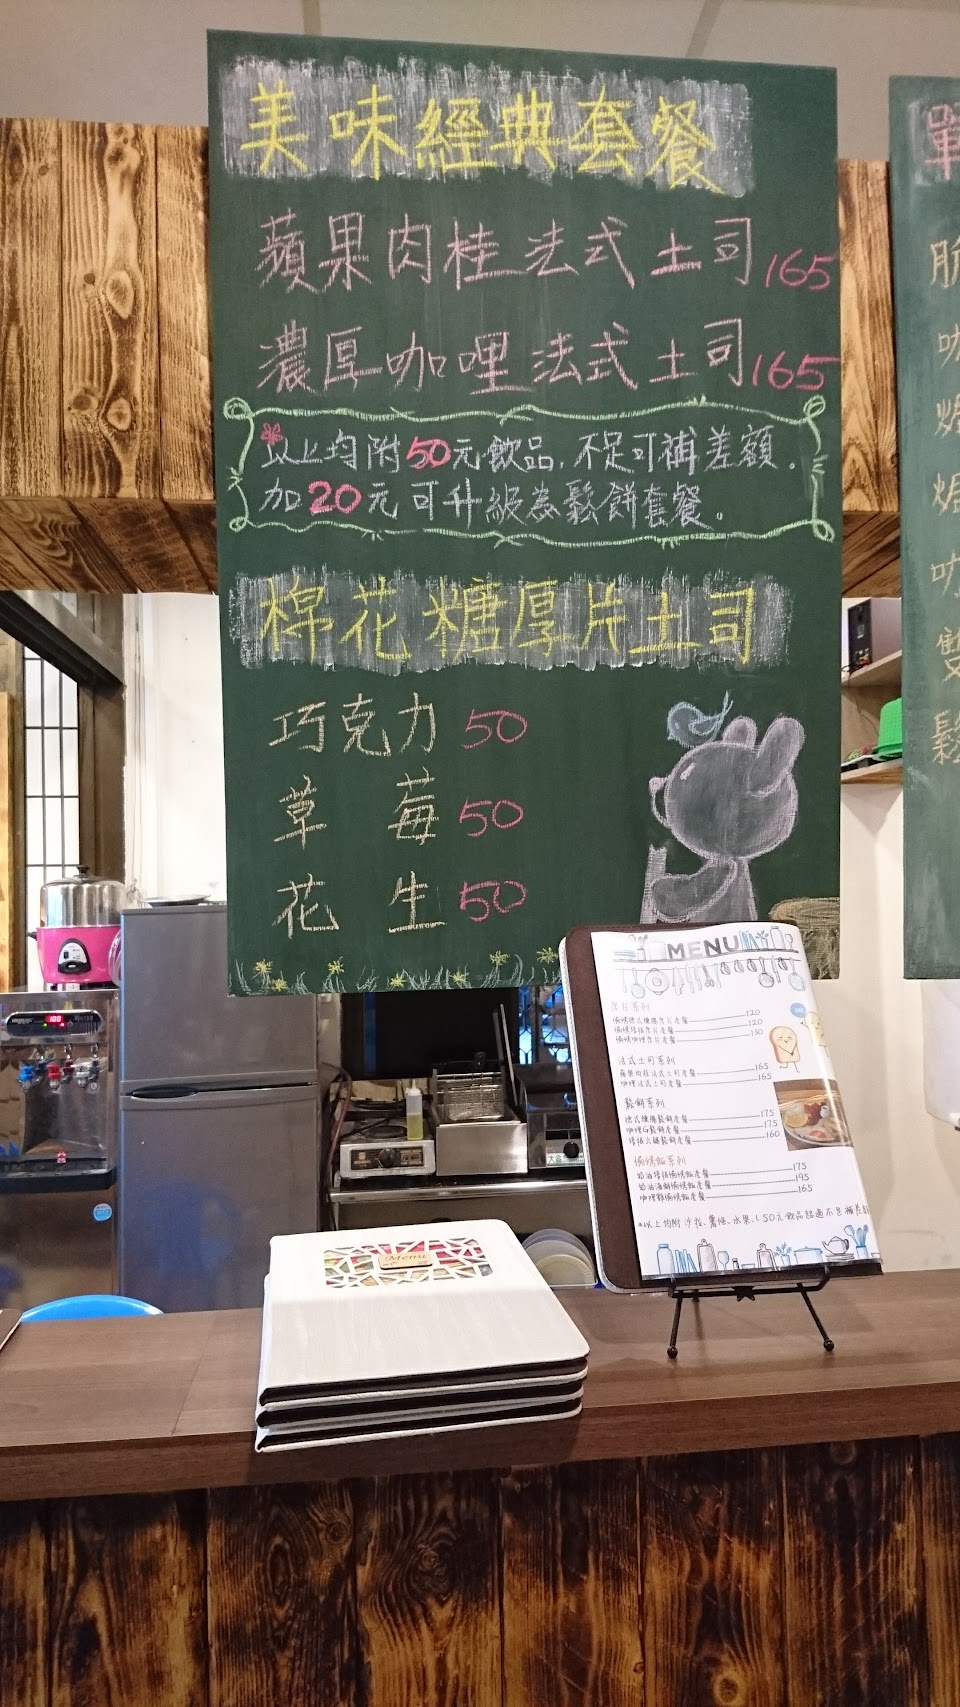 美味經典套餐
蘋果肉桂法式土司 165
濃厚咖哩法式土司 165
*以上均附50元飲品,不足可補差額.
加20元可升級為鬆餅套餐。
棉花糖厚片土司
巧克力 50
草莓 50
花生 50
MENU
厚片系列
120
120
130
法式土司系列
蘋果肉桂法式土司套餐 165
咖哩法式土司套餐 165
鬆餅系列
德式燻腸鬆餅套餐 175
175
160
系列
175
195
165
Menu
100
單
脆
咖
鬆